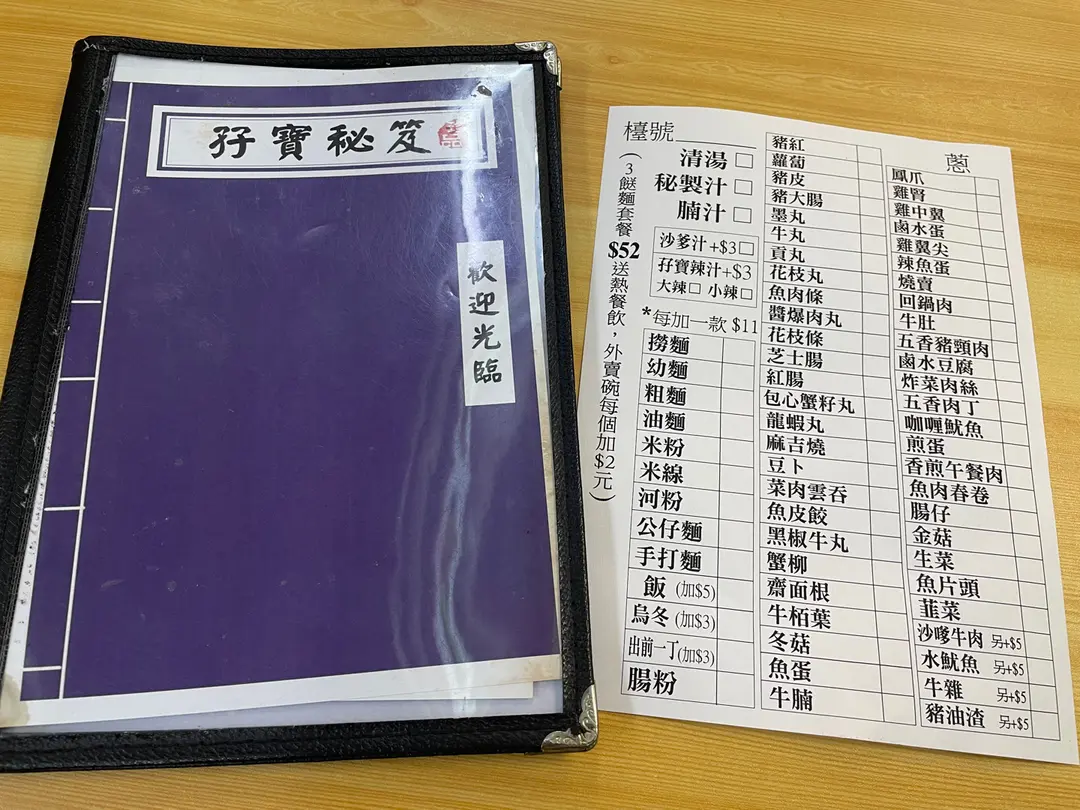 孖寶秘笈
歡迎光臨
檯號
清湯 □
秘製汁 □
腩汁 □
沙爹汁+$3□
孖寶辣汁+$3
大辣□ 小辣□
(3餸麵套餐$52送熱餐飲，外賣碗每個加$2元)
*每加一款 $11
撈麵
幼麵
粗麵
油麵
米粉
米線
河粉
公仔麵
手打麵
飯 (加$5)
烏冬 (加$3)
出前一丁(加$3)
腸粉
豬紅
蘿蔔
豬皮
豬大腸
墨丸
牛丸
貢丸
花枝丸
魚肉條
醬爆肉丸
花枝條
芝士腸
紅腸
包心蟹籽丸
龍蝦丸
麻吉燒
豆卜
菜肉雲吞
魚皮餃
黑椒牛丸
蟹柳
齋面根
牛栢葉
冬菇
魚蛋
牛腩
蔥
鳳爪
雞腎
雞中翼
鹵水蛋
雞翼尖
辣魚蛋
燒賣
回鍋肉
牛肚
五香豬頸肉
鹵水豆腐
炸菜肉絲
五香肉丁
咖喱魷魚
煎蛋
香煎午餐肉
魚肉春卷
腸仔
金菇
生菜
魚片頭
韮菜
沙嗲牛肉 另+$5
水魷魚 另+$5
牛雜 另+$5
豬油渣 另+$5